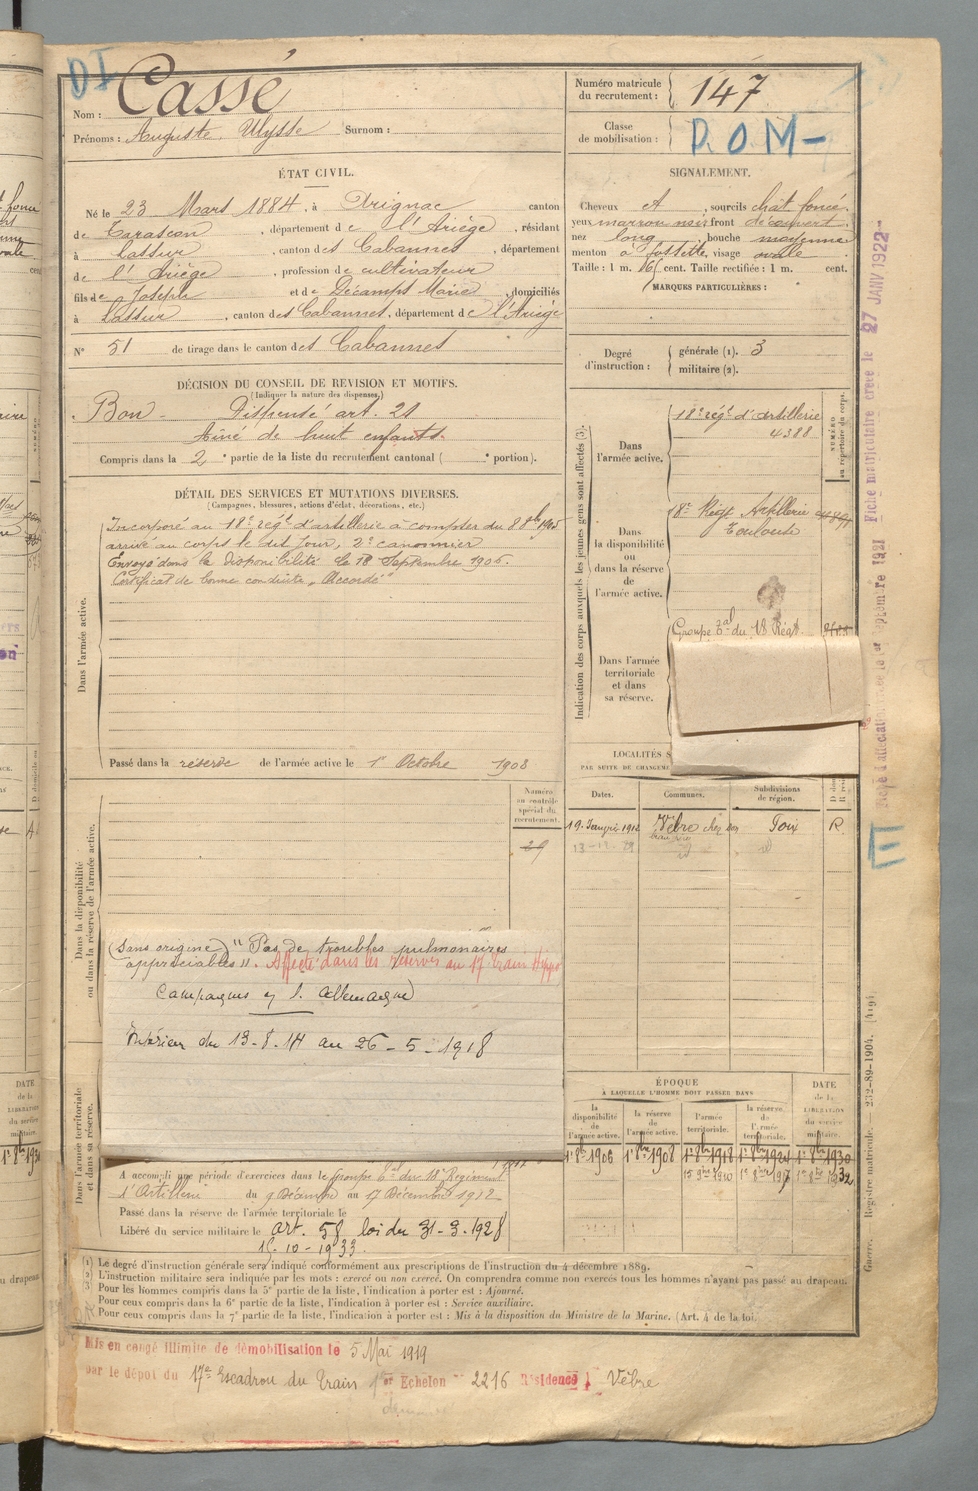 DI
Nom : Cassé
Prénoms : Auguste Ulysse Surnom :
Numéro matricule
du recrutement : 147
Classe
de mobilisation : D.O.M-
ÉTAT CIVIL.
Né le 23 Mars 1884, à Arignac canton
de Tarascon, département de l'Ariège, résidant
à Lassur, canton des Cabannes, département
de l'Ariège, profession de cultivateur
fils de Joseph et de Décamps Marie, domiciliés
à Lassur, canton des Cabannes, département de l'Ariège
N° 51 de tirage dans le canton des Cabannes
SIGNALEMENT.
Cheveux et, sourcils chât foncé.
yeux marron noir, front découvert
nez long, bouche moyenne
menton à fossette, visage ovale
Taille : 1 m. 65 cent. Taille rectifiée : 1 m. cent.
MARQUES PARTICULIÈRES :
Degré
d'instruction :
générale (1). 3
militaire (2).
DÉCISION DU CONSEIL DE REVISION ET MOTIFS.
(Indiquer la nature des dispenses.)
Bon - Dispensé art. 21
Aîné de huit enfants.
Compris dans la 2e partie de la liste du recrutement cantonal ( e portion).
DÉTAIL DES SERVICES ET MUTATIONS DIVERSES.
(Campagnes, blessures, actions d'éclat, décorations, etc.)
Dans l'armée active.
Incorporé au 18e régt d'artillerie à compter du 8 8bre 1905
arrivé au corps le dit jour, 2e canonnier
Envoyé dans la Disponibilité le 18 Septembre 1906.
Certificat de bonne conduite „Accordé"
Passé dans la réserve de l'armée active le 1er Octobre 1908
Indication des corps auxquels les jeunes gens sont affectés (3).
NUMÉRO
au répertoire du corps.
Dans
l'armée active.
18e régt d'Artillerie
4388
Dans
la disponibilité
ou
dans la réserve
de
l'armée active.
18e Régt Artillerie
Toulouse
Dans l'armée
territoriale
et dans
sa réserve.
Groupe tal du 18 Régt
LOCALITÉS S
PAR SUITE DE CHANGEM
Dates.
Communes.
Subdivisions
de région.
19 Janvier 1912 Vèbre chez son Foix R.
beau père
13-12-29 id id
Dans la disponibilité
ou dans la réserve de l'armée active.
Numéro
au contrôle
spécial du
recrutement.
29
(sans origine) "Pas de troubles pulmonaires
appréciables". Affecté dans les réserves au 17 Train Hippo
Campagnes c. l. Allemagne
Intérieur du 13-8-14 au 26-5-1918
Dans l'armée territoriale
et dans sa réserve.
ÉPOQUE
À LAQUELLE L'HOMME DOIT PASSER DANS
DATE
de la
LIBÉRATION
du service
militaire.
la
disponibilité
de
l'armée active.
la réserve
de
l'armée active.
l'armée
territoriale.
la réserve
de
l'armée
territoriale.
1er 8bre 1906 1er 8bre 1908 1er 8bre 1918 1er 8bre 1924 1er 8bre 1930
A accompli une période d'exercices dans le Groupe tal du 18e Régiment
d'Artillerie du 9 Décembre au 17 Décembre 1912
Passé dans la réserve de l'armée territoriale le
Libéré du service militaire le art. 58 loi du 31-3-1928
15-10-1933.
(1) Le degré d'instruction générale sera indiqué conformément aux prescriptions de l'instruction du 4 décembre 1889.
(2) L'instruction militaire sera indiquée par les mots : exercé ou non exercé. On comprendra comme non exercés tous les hommes n'ayant pas passé au drapeau.
(3) Pour les hommes compris dans la 5e partie de la liste, l'indication à porter est : Ajourné.
Pour ceux compris dans la 6e partie de la liste, l'indication à porter est : Service auxiliaire.
Pour ceux compris dans la 7e partie de la liste, l'indication à porter est : Mis à la disposition du Ministre de la Marine. (Art. 4 de la loi.
Mis en congé illimité de démobilisation le 5 Mai 1919
par le dépôt du 17e Escadron du Train 1er Echelon 2216 Résidence Vèbre
Fiche matriculaire créée le 27 JANV 1922
Guerre. Registre matricule. — 232-89-1904. (419)
E